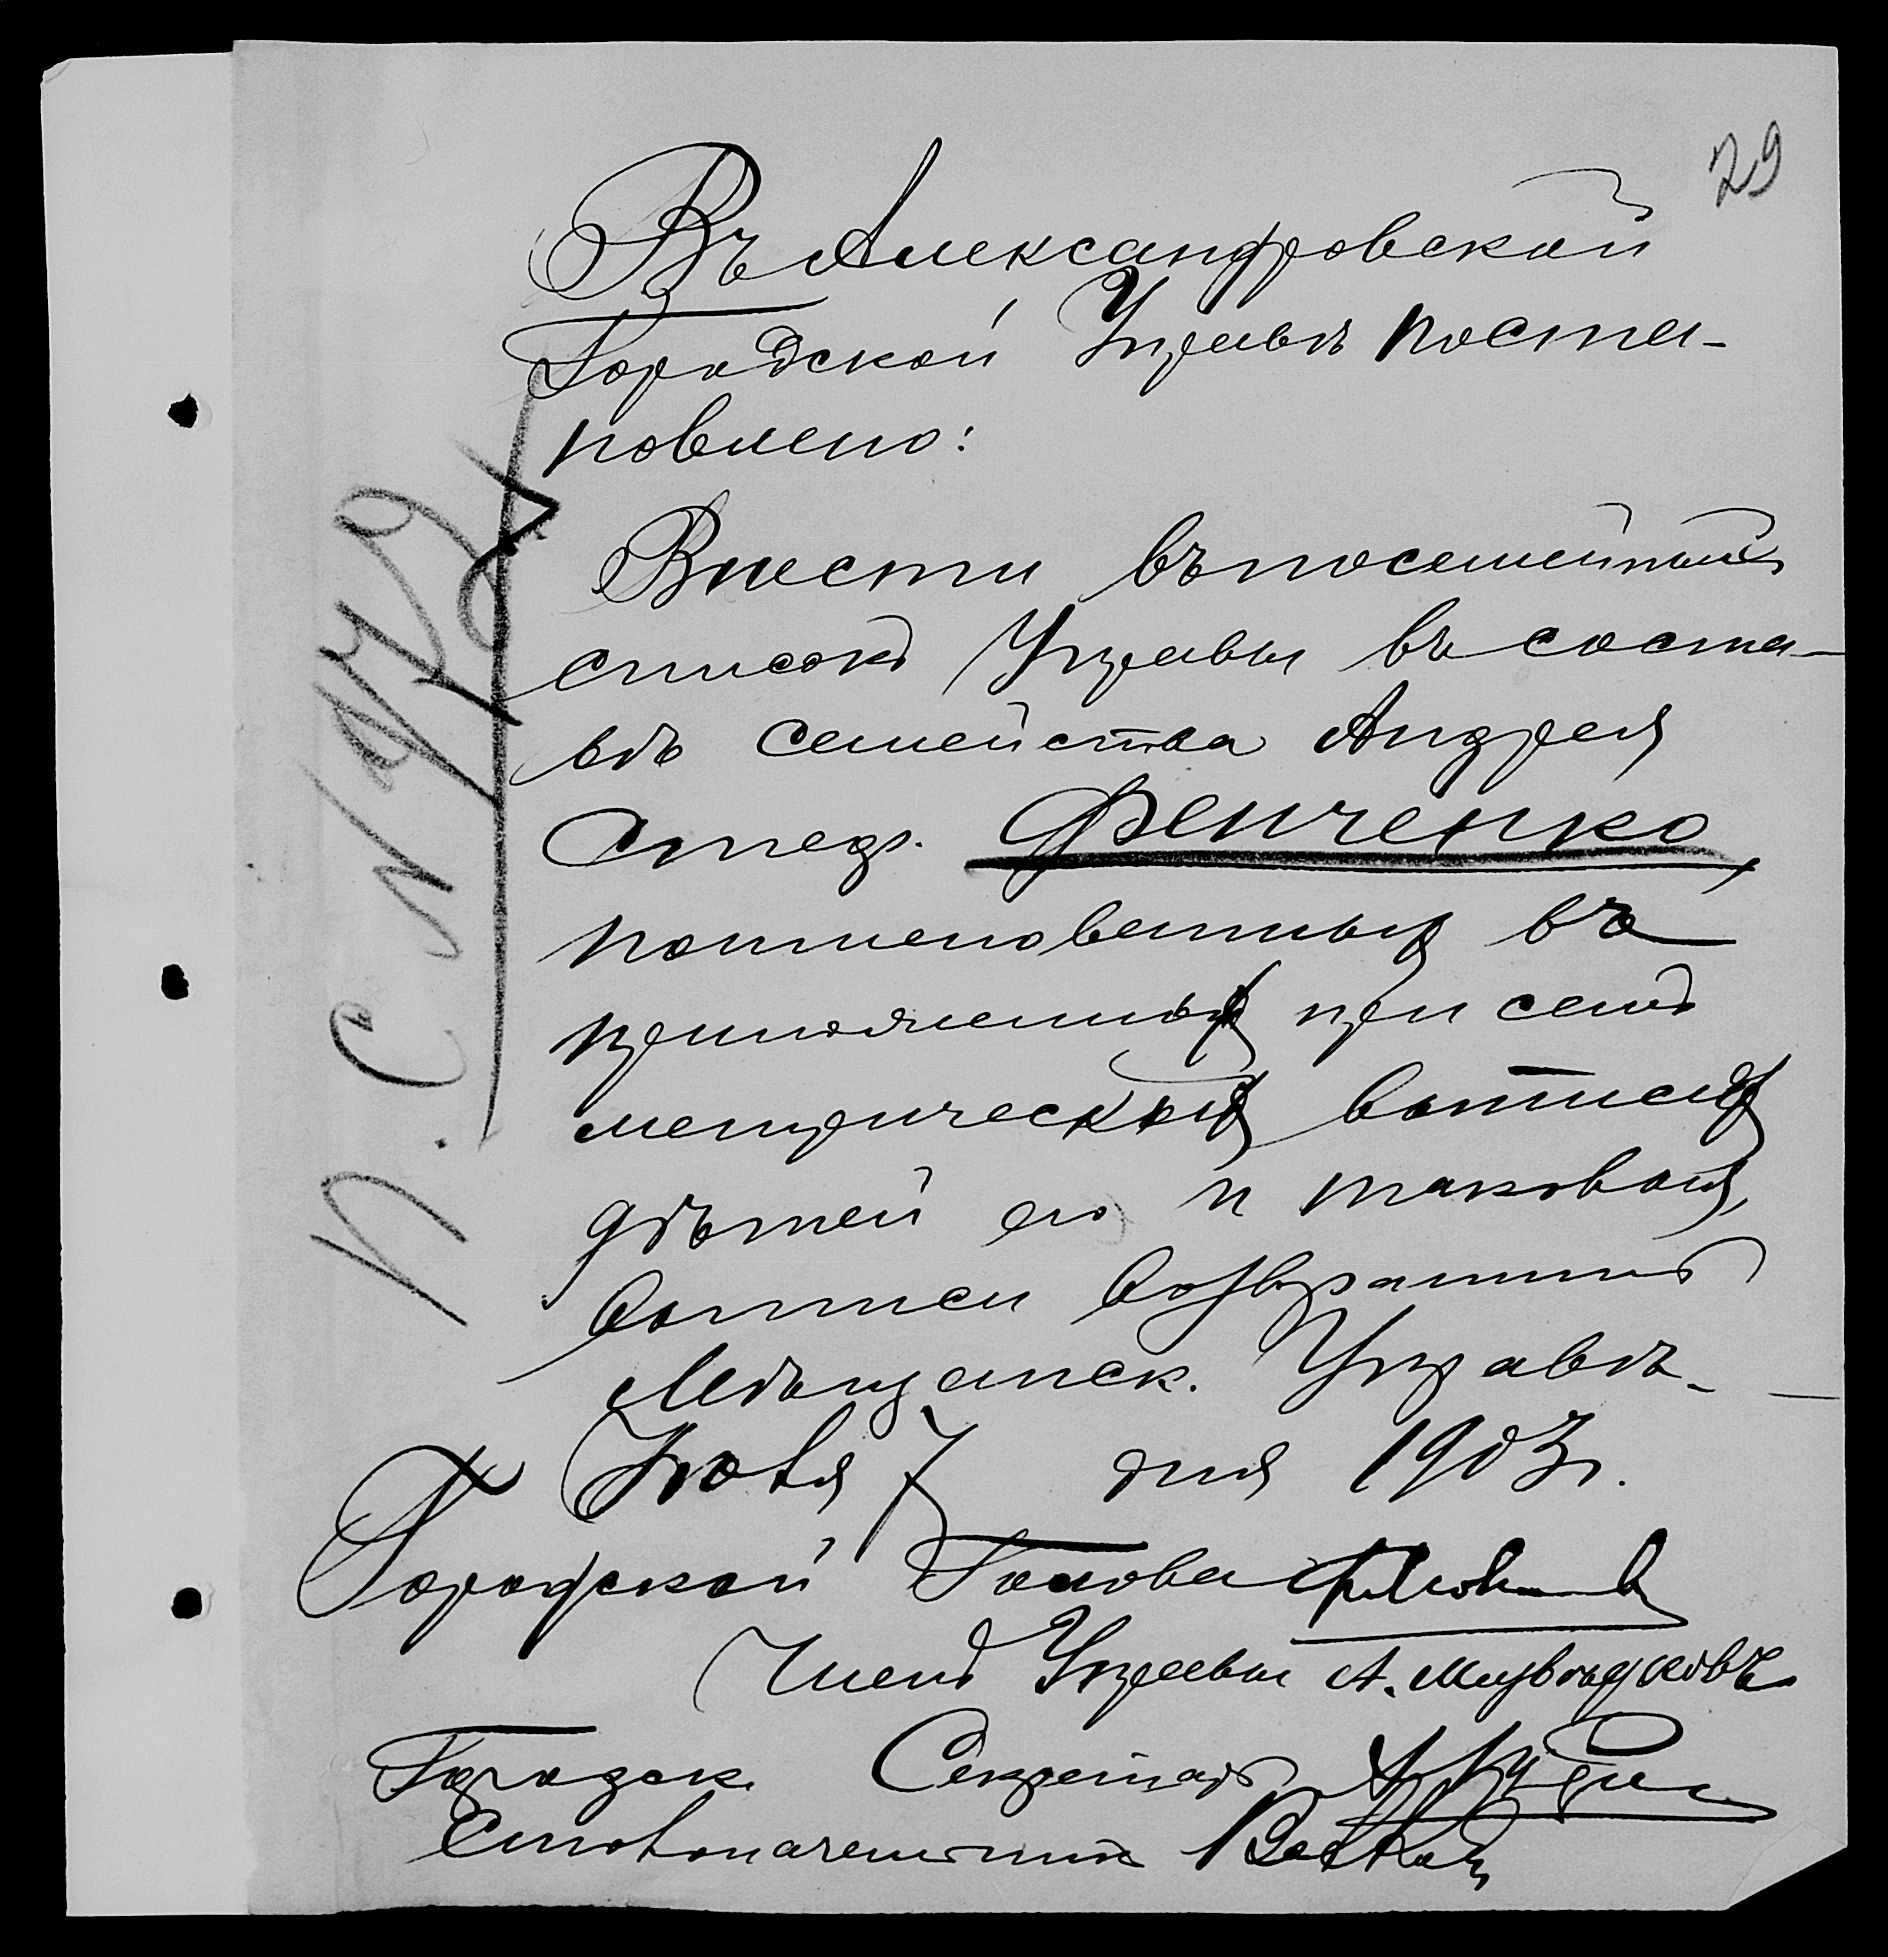 29
Въ Александровской
Городской Управѣ поста-
новлено:
Внести въ посемейный
списокъ Управы въ соста-
вѣ семейства Андрея
Спир. Фенченко,
поименованныхъ въ
приложенныхъ при семъ
метрическихъ выписяхъ
дѣтей его и таковыя
выписи возвратить
Мѣщанск. Управѣ.
Іюля 7 дня 1903 г.
Городской Голова
Членъ Управы А.
Городск. Секретарь
Столоначальникъ
П. С. №